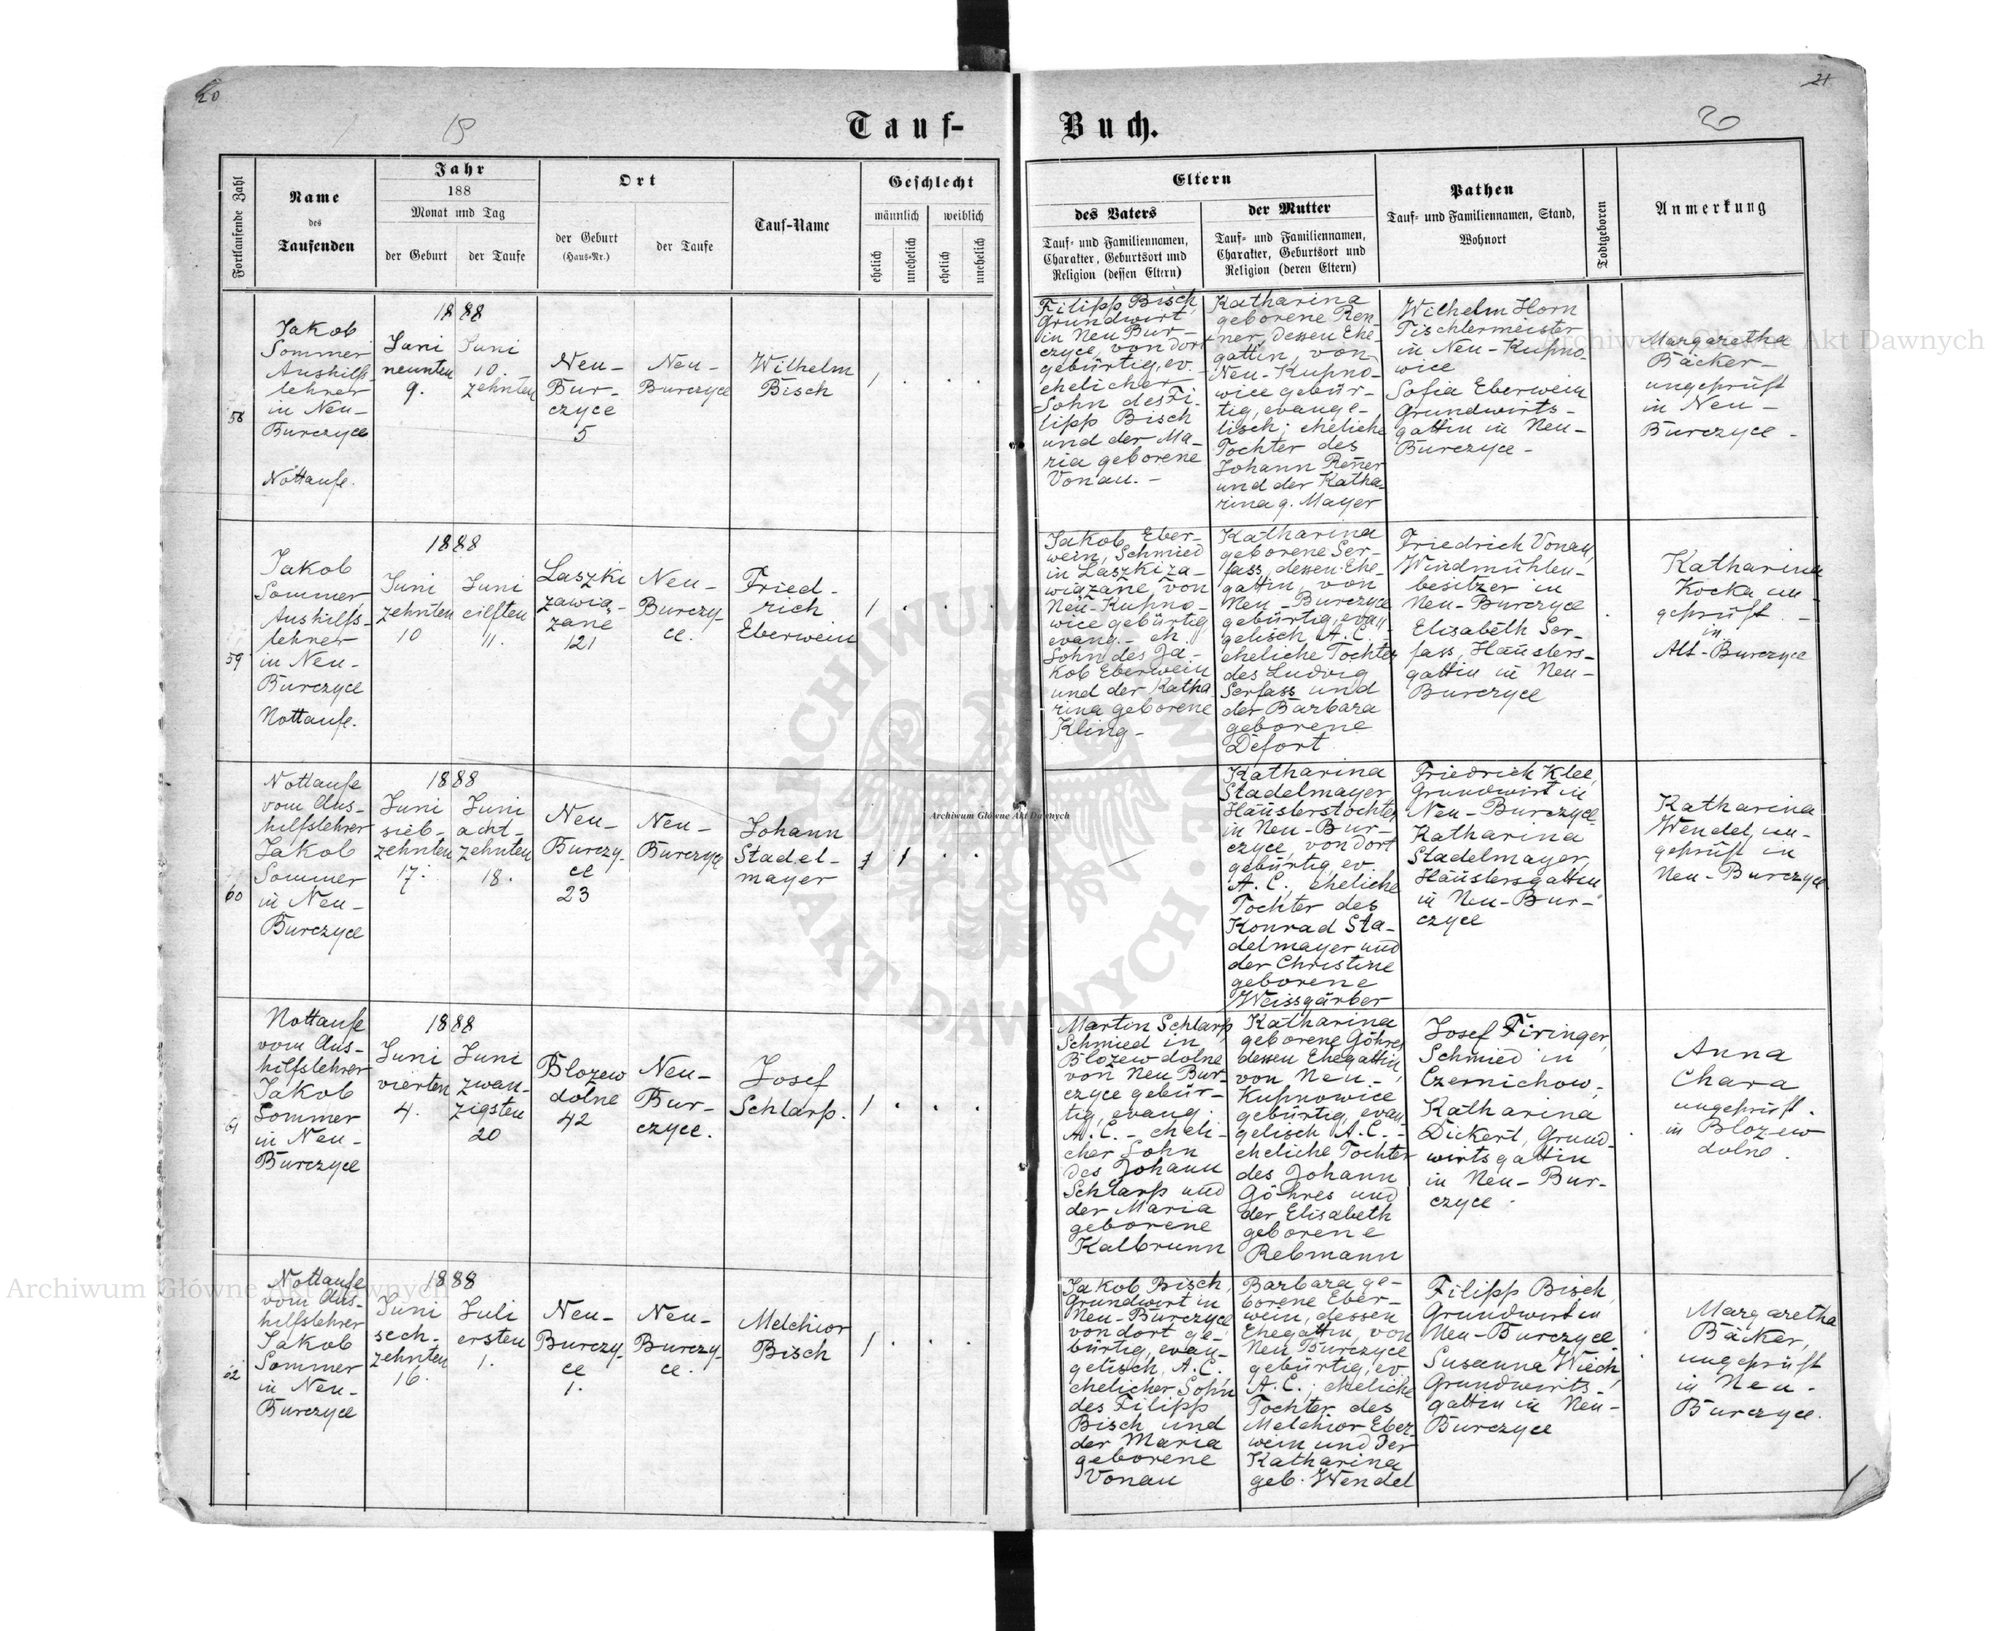 20
21
19
20
Tauf-
Buch.
Fortlaufende Zahl
Name
des
Taufenden
Jahr
188
Monat und Tag
der Geburt
der Taufe
Ort
der Geburt
(Haus-Nr.)
der Taufe
Tauf-Name
Geschlecht
männlich
weiblich
ehelich
unehelich
ehelich
unehelich
Eltern
des Vaters
Tauf- und Familiennamen,
Charakter, Geburtsort und
Religion (dessen Eltern)
der Mutter
Tauf- und Familiennamen,
Charakter, Geburtsort und
Religion (deren Eltern)
Pathen
Tauf- und Familiennamen, Stand,
Wohnort
Todtgeboren
Anmerkung
58
Jakob
Sommer
Aushilfs-
lehrer
in Neu-
Burczyce
Nottaufe.
1888
Juni
neunten
9.
Juni
10.
zehnten
Neu-
Bur-
czyce
5
Neu-
Burczyce
Wilhelm
Bisch
1
Filipp Bisch,
Grundwirt
in Neu Bur-
czyce, von dort
gebürtig, ev.
ehelicher
Sohn des Fi-
lipp Bisch
und der Ma-
ria geborene
Vonau. -
Katharina
geborene Ren
ner, dessen Ehe-
gattin, von
Neu-Kupno-
wice gebür-
tig, evange-
lisch; eheliche
Tochter des
Johann Renner
und der Katha-
rina g. Mayer
Wilhelm Horn
Tischlermeister
in Neu-Kupno-
wice
Sofia Eberwein
Grundwirts-
gattin in Neu-
Burczyce -
Margaretha
Bäcker-
ungeprüft
in Neu-
Burczyce -
59
Jakob
Sommer
Aushilfs-
lehrer
in Neu-
Burczyce
Nottaufe.
1888
Juni
zehnten
10
Juni
eilften
11.
Laszki
zawią-
zane
121
Neu-
Burczy-
ce.
Fried-
rich
Eberwein
1
Jakob Eber-
wein, Schmied
in Laszki za-
wiązane von
Neu-Kupno-
wice gebürtig
evang. - eh.
Sohn des Ja-
kob Eberwein
und der Katha
rina geborene
Kling -
Katharina
geborene Ser-
fass, dessen Ehe-
gattin, von
Neu-Burczyce
gebürtig, evan
gelisch A.C. -
eheliche Tochter
des Ludwig
Serfass und
der Barbara
geborene
Defort
Friedrich Vonau,
Windmühlen-
besitzer in
Neu-Burczyce
Elisabeth Ser-
fass, Häuslers-
gattin in Neu-
Burczyce
Katharina
Kocka un-
geprüft -
in
Alt-Burczyce
60
Nottaufe
vom Aus-
hilfslehrer
Jakob
Sommer
in Neu-
Burczyce
1888
Juni
sieb-
zehnten
17.
Juni
acht-
zehnten
18.
Neu-
Burczy-
ce
23
Neu-
Burczyce
Johann
Stadel-
mayer
1
Katharina
Stadelmayer
Häuslerstochter
in Neu-Bur-
czyce, von dort
gebürtig, ev.
A.C., eheliche
Tochter des
Konrad Sta-
delmayer und
der Christine
geborene
Weissgärber
Friedrich Klee,
Grundwirt in
Neu-Burczyce
Katharina
Stadelmayer,
Häuslersgattin
in Neu-Bur-
czyce
Katharina
Wendel, un-
geprüft in
Neu-Burczyce
61
Nottaufe
vom Aus-
hilfslehrer
Jakob
Sommer
in Neu-
Burczyce
1888
Juni
vierten
4.
Juni
zwan-
zigsten
20
Blozew
dolne
42
Neu-
Bur-
czyce.
Josef
Schlarp.
1
Martin Schlarp,
Schmied in
Blozew dolne
von Neu Bur-
czyce gebür-
tig, evang.
A.C. - eheli-
cher Sohn
des Johann
Schlarp und
der Maria
geborene
Kalbrunn
Katharina
geborene Göhres
dessen Ehegattin,
von Neu-
Kupnowice
gebürtig, evan-
gelisch A.C. -
eheliche Tochter
des Johann
Göhres und
der Elisabeth
geborene
Rebmann
Josef Firinger,
Schmied in
Czernichow,
Katharina
Dickert, Grund-
wirtsgattin
in Neu-Bur-
czyce.
Anna
Chara
ungeprüft.
in Blozew
dolne.
62
Nottaufe
vom Aus-
hilfslehrer
Jakob
Sommer
in Neu-
Burczyce
1888
Juni
sech-
zehnten
16.
Juli
ersten
1.
Neu-
Burczy-
ce
1.
Neu-
Burczy-
ce.
Melchior
Bisch
1
Jakob Bisch,
Grundwirt in
Neu-Burczyce
von dort ge-
bürtig, evan-
gelisch, A.C.
ehelicher Sohn
des Filipp
Bisch und
der Maria
geborene
Vonau
Barbara ge-
borene Eber-
wein, dessen
Ehegattin, von
Neu Burczyce
gebürtig, ev.
A.C., eheliche
Tochter des
Melchior Eber-
wein und der
Katharina
geb. Wendel
Filipp Bisch,
Grundwirt in
Neu-Burczyce
Susanna Wiech,
Grundwirts-
gattin in Neu-
Burczyce
Margaretha
Bäcker,
ungeprüft
in Neu-
Burczyce.
Archiwum Główne Akt Dawnych
Archiwum Główne Akt Dawnych
Archiwum Główne Akt Dawnych
ARCHIWUM GŁÓWNE AKT DAWNYCH